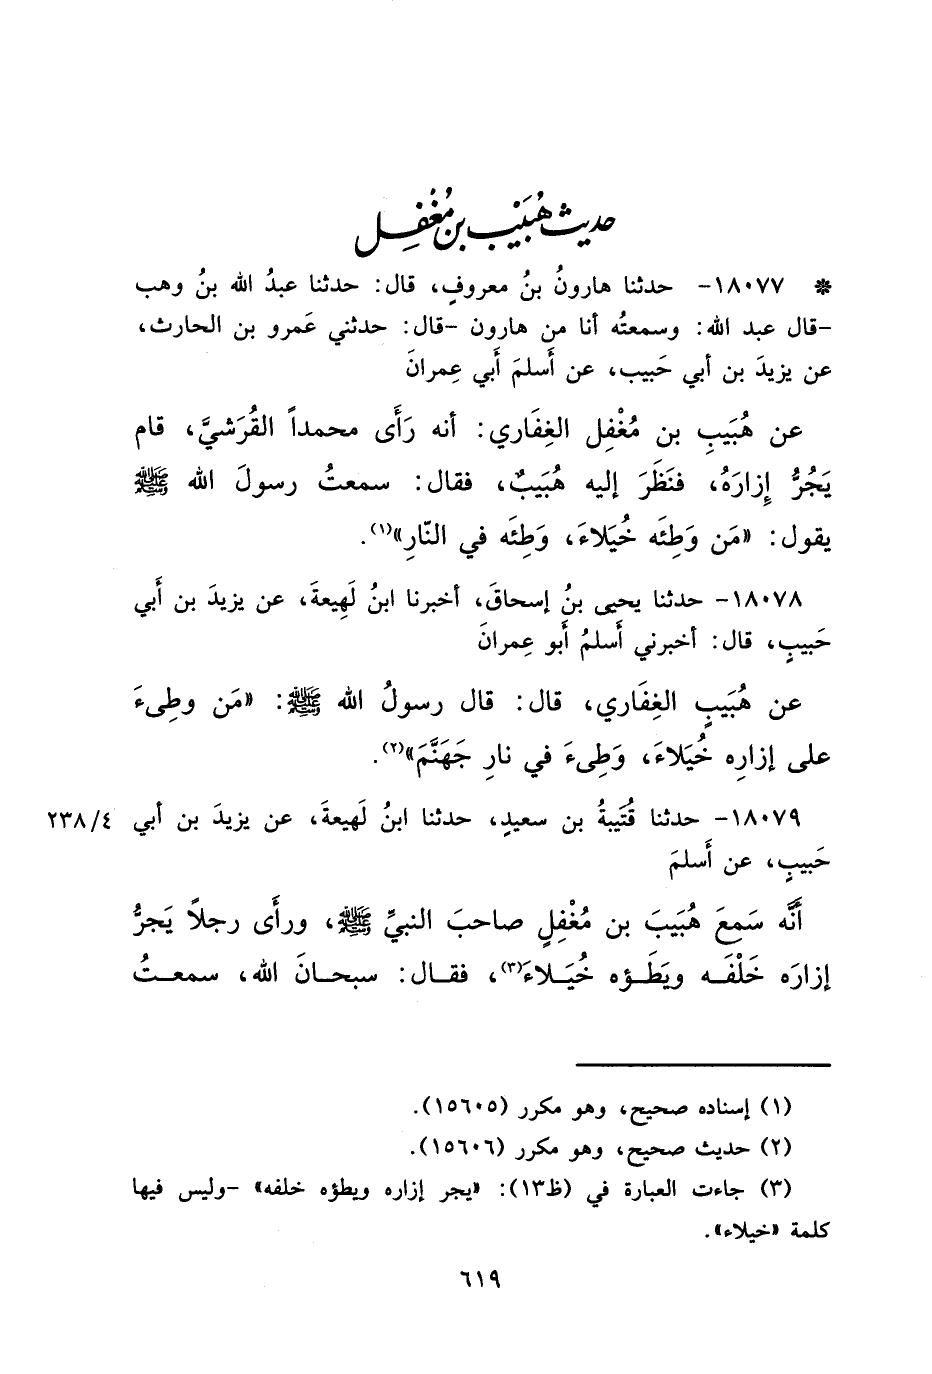 حديث هُبَيْب بن مُغْفِل
* ١٨٠٧٧- حدثنا هارونُ بنُ معروفٍ، قال: حدثنا عبدُ الله بنُ وهب
-قال عبد الله: وسمعتُه أنا من هارون -قال: حدثني عَمرو بن الحارث،
عن يزيدَ بن أبي حَبيب، عن أَسلمَ أَبي عِمرانَ
عن هُبَيبِ بن مُغْفِل الغِفَاري: أنه رَأَى محمداً القُرَشيَّ، قام
يَجُرُّ إِزارَهُ، فنَظَرَ إليه هُبَيبٌ، فقال: سمعتُ رسولَ الله ﷺ
يقول: «مَن وَطِئَه خُيَلاءَ، وَطِئَه في النّارِ»(١).
١٨٠٧٨- حدثنا يحيى بنُ إسحاقَ، أخبرنا ابنُ لَهِيعةَ، عن يزيدَ بن أَبي
حَبيبٍ، قال: أخبرني أَسلمُ أَبو عِمرانَ
عن هُبَيبٍ الغِفَاري، قال: قال رسولُ الله ﷺ: «مَن وطِىءَ
على إزارِه خُيَلاءَ، وَطِىءَ في نارِ جَهَنَّمَ»(٢).
١٨٠٧٩- حدثنا قُتَيبةُ بن سعيدٍ، حدثنا ابنُ لَهيعةَ، عن يزيدَ بن أبي ٢٣٨/٤
حَبيبٍ، عن أَسلمَ
أَنَّه سَمِعَ هُبَيبَ بن مُغْفِلٍ صاحبَ النبيِّ ﷺ، ورأَى رجلاً يَجرُّ
إزارَه خَلْفَـه ويَطَـؤه خُيَـلاءَ(٣)، فقـال: سبحـانَ الله، سمعـتُ
(١) إسناده صحيح، وهو مكرر (١٥٦٠٥).
(٢) حديث صحيح، وهو مكرر (١٥٦٠٦).
(٣) جاءت العبارة في (ظ١٣): «يجر إزاره ويطؤه خلفه» -وليس فيها
كلمة «خيلاء».
٦١٩